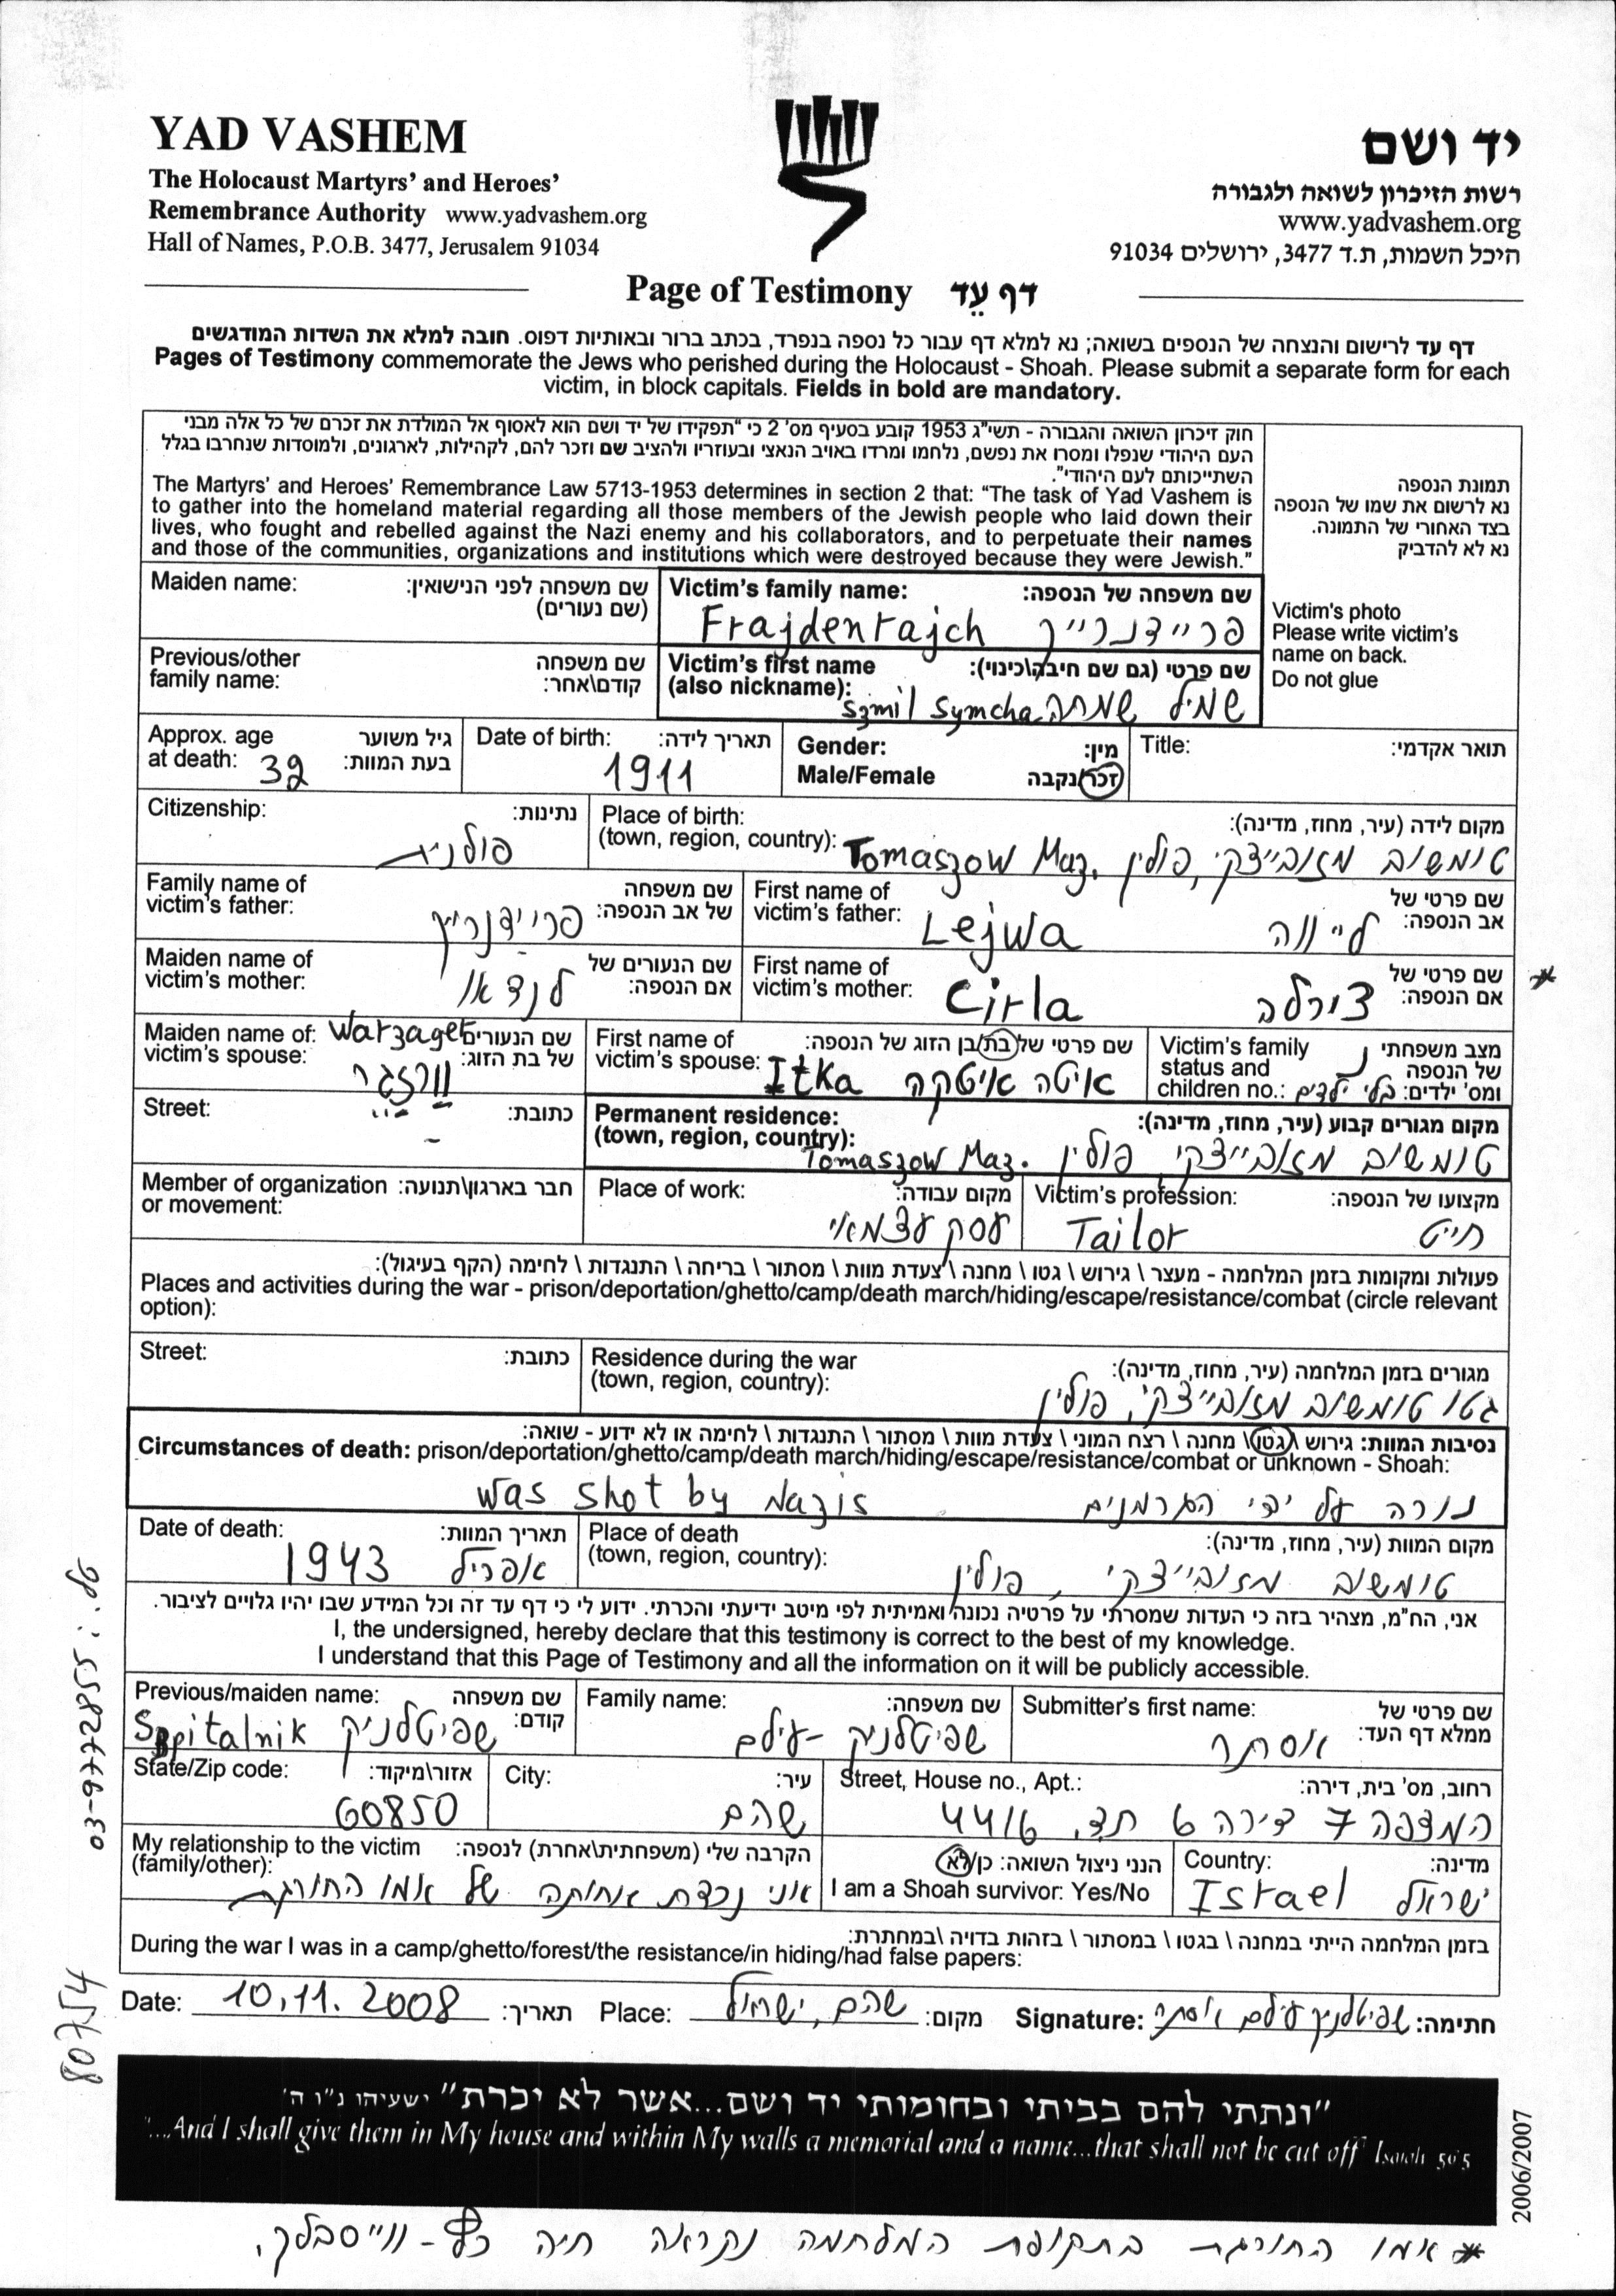 YAD VASHEM
The Holocaust Martyrs' and Heroes'
Remembrance Authority www.yadvashem.org
Hall of Names, P.O.B. 3477, Jerusalem 91034
יד ושם
רשות הזיכרון לשואה ולגבורה
www.yadvashem.org
היכל השמות, ת.ד 3477, ירושלים 91034
Page of Testimony דף עֵד
דף עד לרישום והנצחה של הנספים בשואה; נא למלא דף עבור כל נספה בנפרד, בכתב ברור ובאותיות דפוס. חובה למלא את השדות המודגשים
Pages of Testimony commemorate the Jews who perished during the Holocaust - Shoah. Please submit a separate form for each
victim, in block capitals. Fields in bold are mandatory.
חוק זיכרון השואה והגבורה - תשי"ג 1953 קובע בסעיף מס' 2 כי "תפקידו של יד ושם הוא לאסוף אל המולדת את זכרם של כל אלה מבני
העם היהודי שנפלו ומסרו את נפשם, נלחמו ומרדו באויב הנאצי ובעוזריו ולהציב שם וזכר להם, לקהילות, לארגונים, ולמוסדות שנחרבו בגלל
השתייכותם לעם היהודי".
The Martyrs' and Heroes' Remembrance Law 5713-1953 determines in section 2 that: "The task of Yad Vashem is
to gather into the homeland material regarding all those members of the Jewish people who laid down their
lives, who fought and rebelled against the Nazi enemy and his collaborators, and to perpetuate their names
and those of the communities, organizations and institutions which were destroyed because they were Jewish."
תמונת הנספה
נא לרשום את שמו של הנספה
בצד האחורי של התמונה.
נא לא להדביק
Victim's photo
Please write victim's
name on back.
Do not glue
Maiden name: שם משפחה לפני הנישואין:
(שם נעורים)
Victim's family name: שם משפחה של הנספה:
Frajdenrajch פריידנרייך
Previous/other שם משפחה
family name: קודם\אחר:
Victim's first name שם פרטי (גם שם חיבה\כינוי):
(also nickname):
Szmil Symcha שמיל שמחה
Approx. age גיל משוער
at death: 32 בעת המוות:
Date of birth: תאריך לידה:
1911
Gender: מין:
Male/Female זכר/נקבה
Title: תואר אקדמי:
Citizenship: נתינות:
פולנית
Place of birth: מקום לידה (עיר, מחוז, מדינה):
(town, region, country): Tomaszow Maz. טומשוב מזובייצקי, פולין
Family name of שם משפחה
victim's father: של אב הנספה: פריידנרייך
First name of שם פרטי של
victim's father: Lejwa לייווה אב הנספה:
Maiden name of שם הנעורים של
victim's mother: אם הנספה: לנדאו
First name of שם פרטי של
victim's mother: Cirla צירלה אם הנספה: *
Maiden name of: Warzager שם הנעורים
victim's spouse: של בת הזוג: וורזגר
First name of שם פרטי של בת/בן הזוג של הנספה:
victim's spouse: Itka איטה איטקה
Victim's family מצב משפחתי
status and של הנספה
children no.: ומס' ילדים: בלי ילדים
Street: כתובת:
-
Permanent residence: מקום מגורים קבוע (עיר, מחוז, מדינה):
(town, region, country):
Tomaszow Maz. טומשוב מזובייצקי פולין
Member of organization חבר בארגון\תנועה:
or movement:
Place of work: מקום עבודה:
עסק עצמאי
Victim's profession: מקצועו של הנספה:
Tailor חייט
פעולות ומקומות בזמן המלחמה - מעצר \ גירוש \ גטו \ מחנה \ צעדת מוות \ מסתור \ בריחה \ התנגדות \ לחימה (הקף בעיגול):
Places and activities during the war - prison/deportation/ghetto/camp/death march/hiding/escape/resistance/combat (circle relevant
option):
Street: כתובת:
Residence during the war מגורים בזמן המלחמה (עיר, מחוז, מדינה):
(town, region, country):
גטו טומשוב מזובייצקי, פולין
נסיבות המוות: גירוש \ גטו \ מחנה \ רצח המוני \ צעדת מוות \ מסתור \ התנגדות \ לחימה או לא ידוע - שואה:
Circumstances of death: prison/deportation/ghetto/camp/death march/hiding/escape/resistance/combat or unknown - Shoah:
Was shot by Nazis נורה על ידי הגרמנים
Date of death: תאריך המוות:
1943 אפריל
Place of death מקום המוות (עיר, מחוז, מדינה):
(town, region, country):
טומשוב מזובייצקי, פולין
אני, הח"מ, מצהיר בזה כי העדות שמסרתי על פרטיה נכונה ואמיתית לפי מיטב ידיעתי והכרתי. ידוע לי כי דף עד זה וכל המידע שבו יהיו גלויים לציבור.
I, the undersigned, hereby declare that this testimony is correct to the best of my knowledge.
I understand that this Page of Testimony and all the information on it will be publicly accessible.
Previous/maiden name: שם משפחה
קודם: שפיטלניק Szpitalnik
Family name: שם משפחה:
שפיטלניק - עילם
Submitter's first name: שם פרטי של
ממלא דף העד: אסתר
State/Zip code: אזור\מיקוד:
60850
City: עיר:
שהם
Street, House no., Apt.: רחוב, מס' בית, דירה:
המצפה 7 דירה 6 ת.ד. 4416
My relationship to the victim הקרבה שלי (משפחתית\אחרת) לנספה:
(family/other): אני נכדת אחותה של אמו החורגת
הנני ניצול השואה: כן/לא
I am a Shoah survivor: Yes/No
Country: מדינה:
Israel ישראל
בזמן המלחמה הייתי במחנה \ בגטו \ במסתור \ בזהות בדויה \במחתרת:
During the war I was in a camp/ghetto/forest/the resistance/in hiding/had false papers:
Date: 10.11.2008 תאריך: Place: שהם, ישראל מקום: Signature: שפיטלניק עילם אסתר חתימה:
"ונתתי להם בביתי ובחומותי יד ושם...אשר לא יכרת" ישעיהו נ"ו ה'
"...And I shall give them in My house and within My walls a memorial and a name...that shall not be cut off" Isaiah 56:5
2006/2007
* אמו החורגת בתקופת המלחמה נקראה חיה - ווייסבלך.
03-9772855
80754